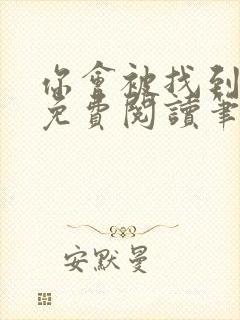 你會被找到
免費閱讀筆
安默曼